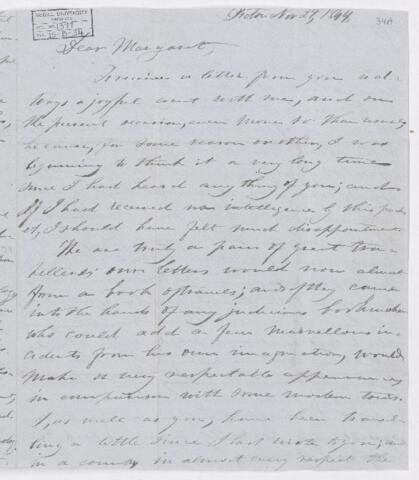 McGILL UNIVERSITY
Pictou Nov 29, 1844
344
Dear Margaret,
To receive a letter from you is al-
ways a joyful event with me, and on
the present occasion, even more so than usual,
because, for some reason or other, I was
beginning to think it a very long time
since I had heard any thing of you; and
if I had received no intelligence by this pack-
et, I should have felt much disappointment
We are truly a pair of great tra-
vellers; our letters would now almost
form a book of travels; and if they came
into the hands of any judicious bookmaker
who could add a few marvellous in-
cidents from his own imagination, would
make a very respectable appearance
in comparison with some modern tours.
I, as well as you, have been travel-
ling a little since I last wrote to you; and
in a country in almost every respect the